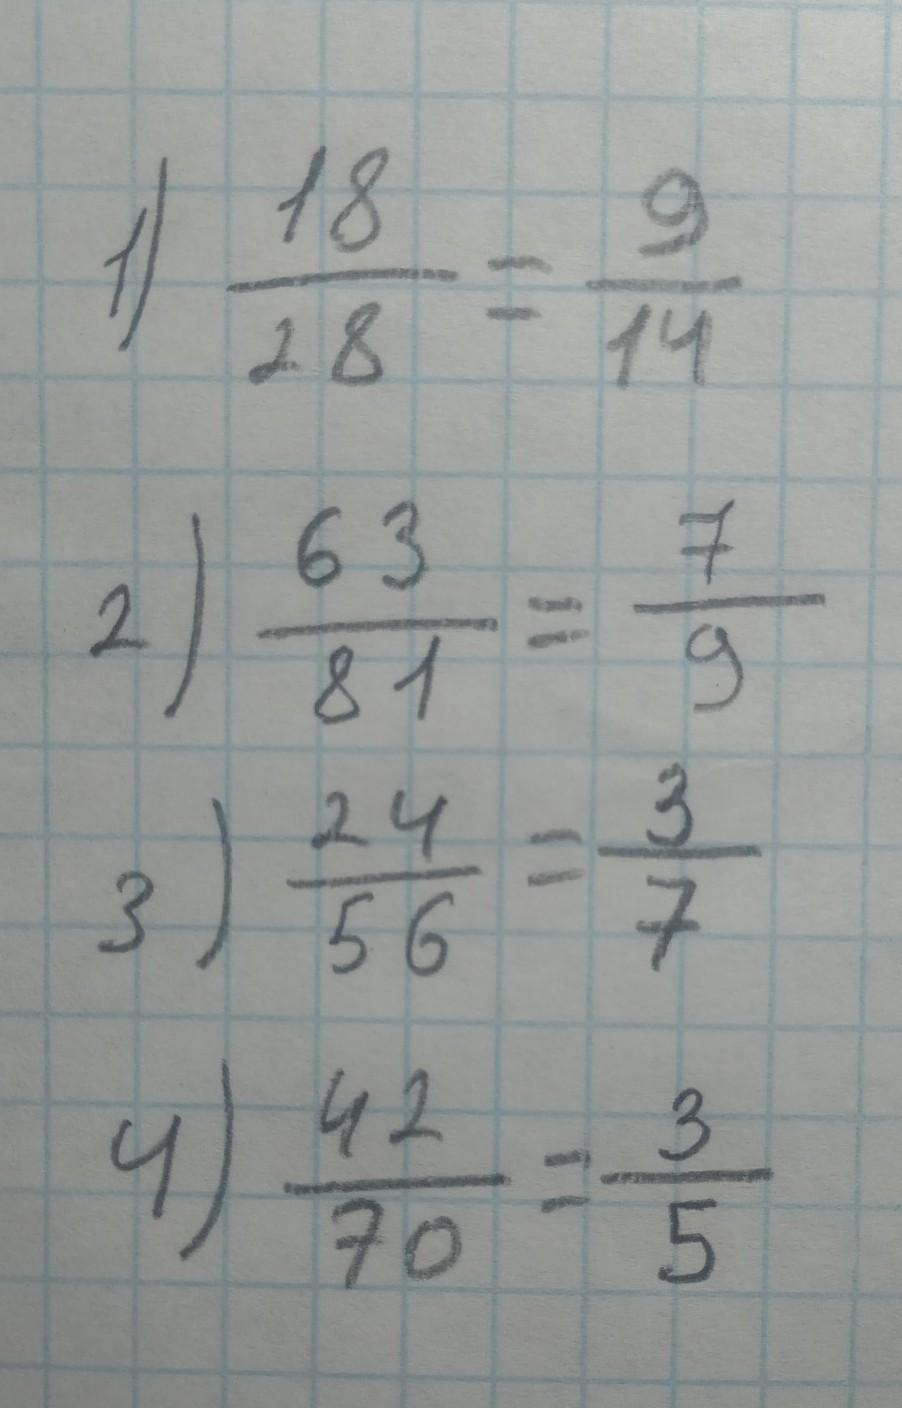 1) 18/28 = 9/14
2) 63/81 = 7/9
3) 24/56 = 3/7
4) 42/70 = 3/5